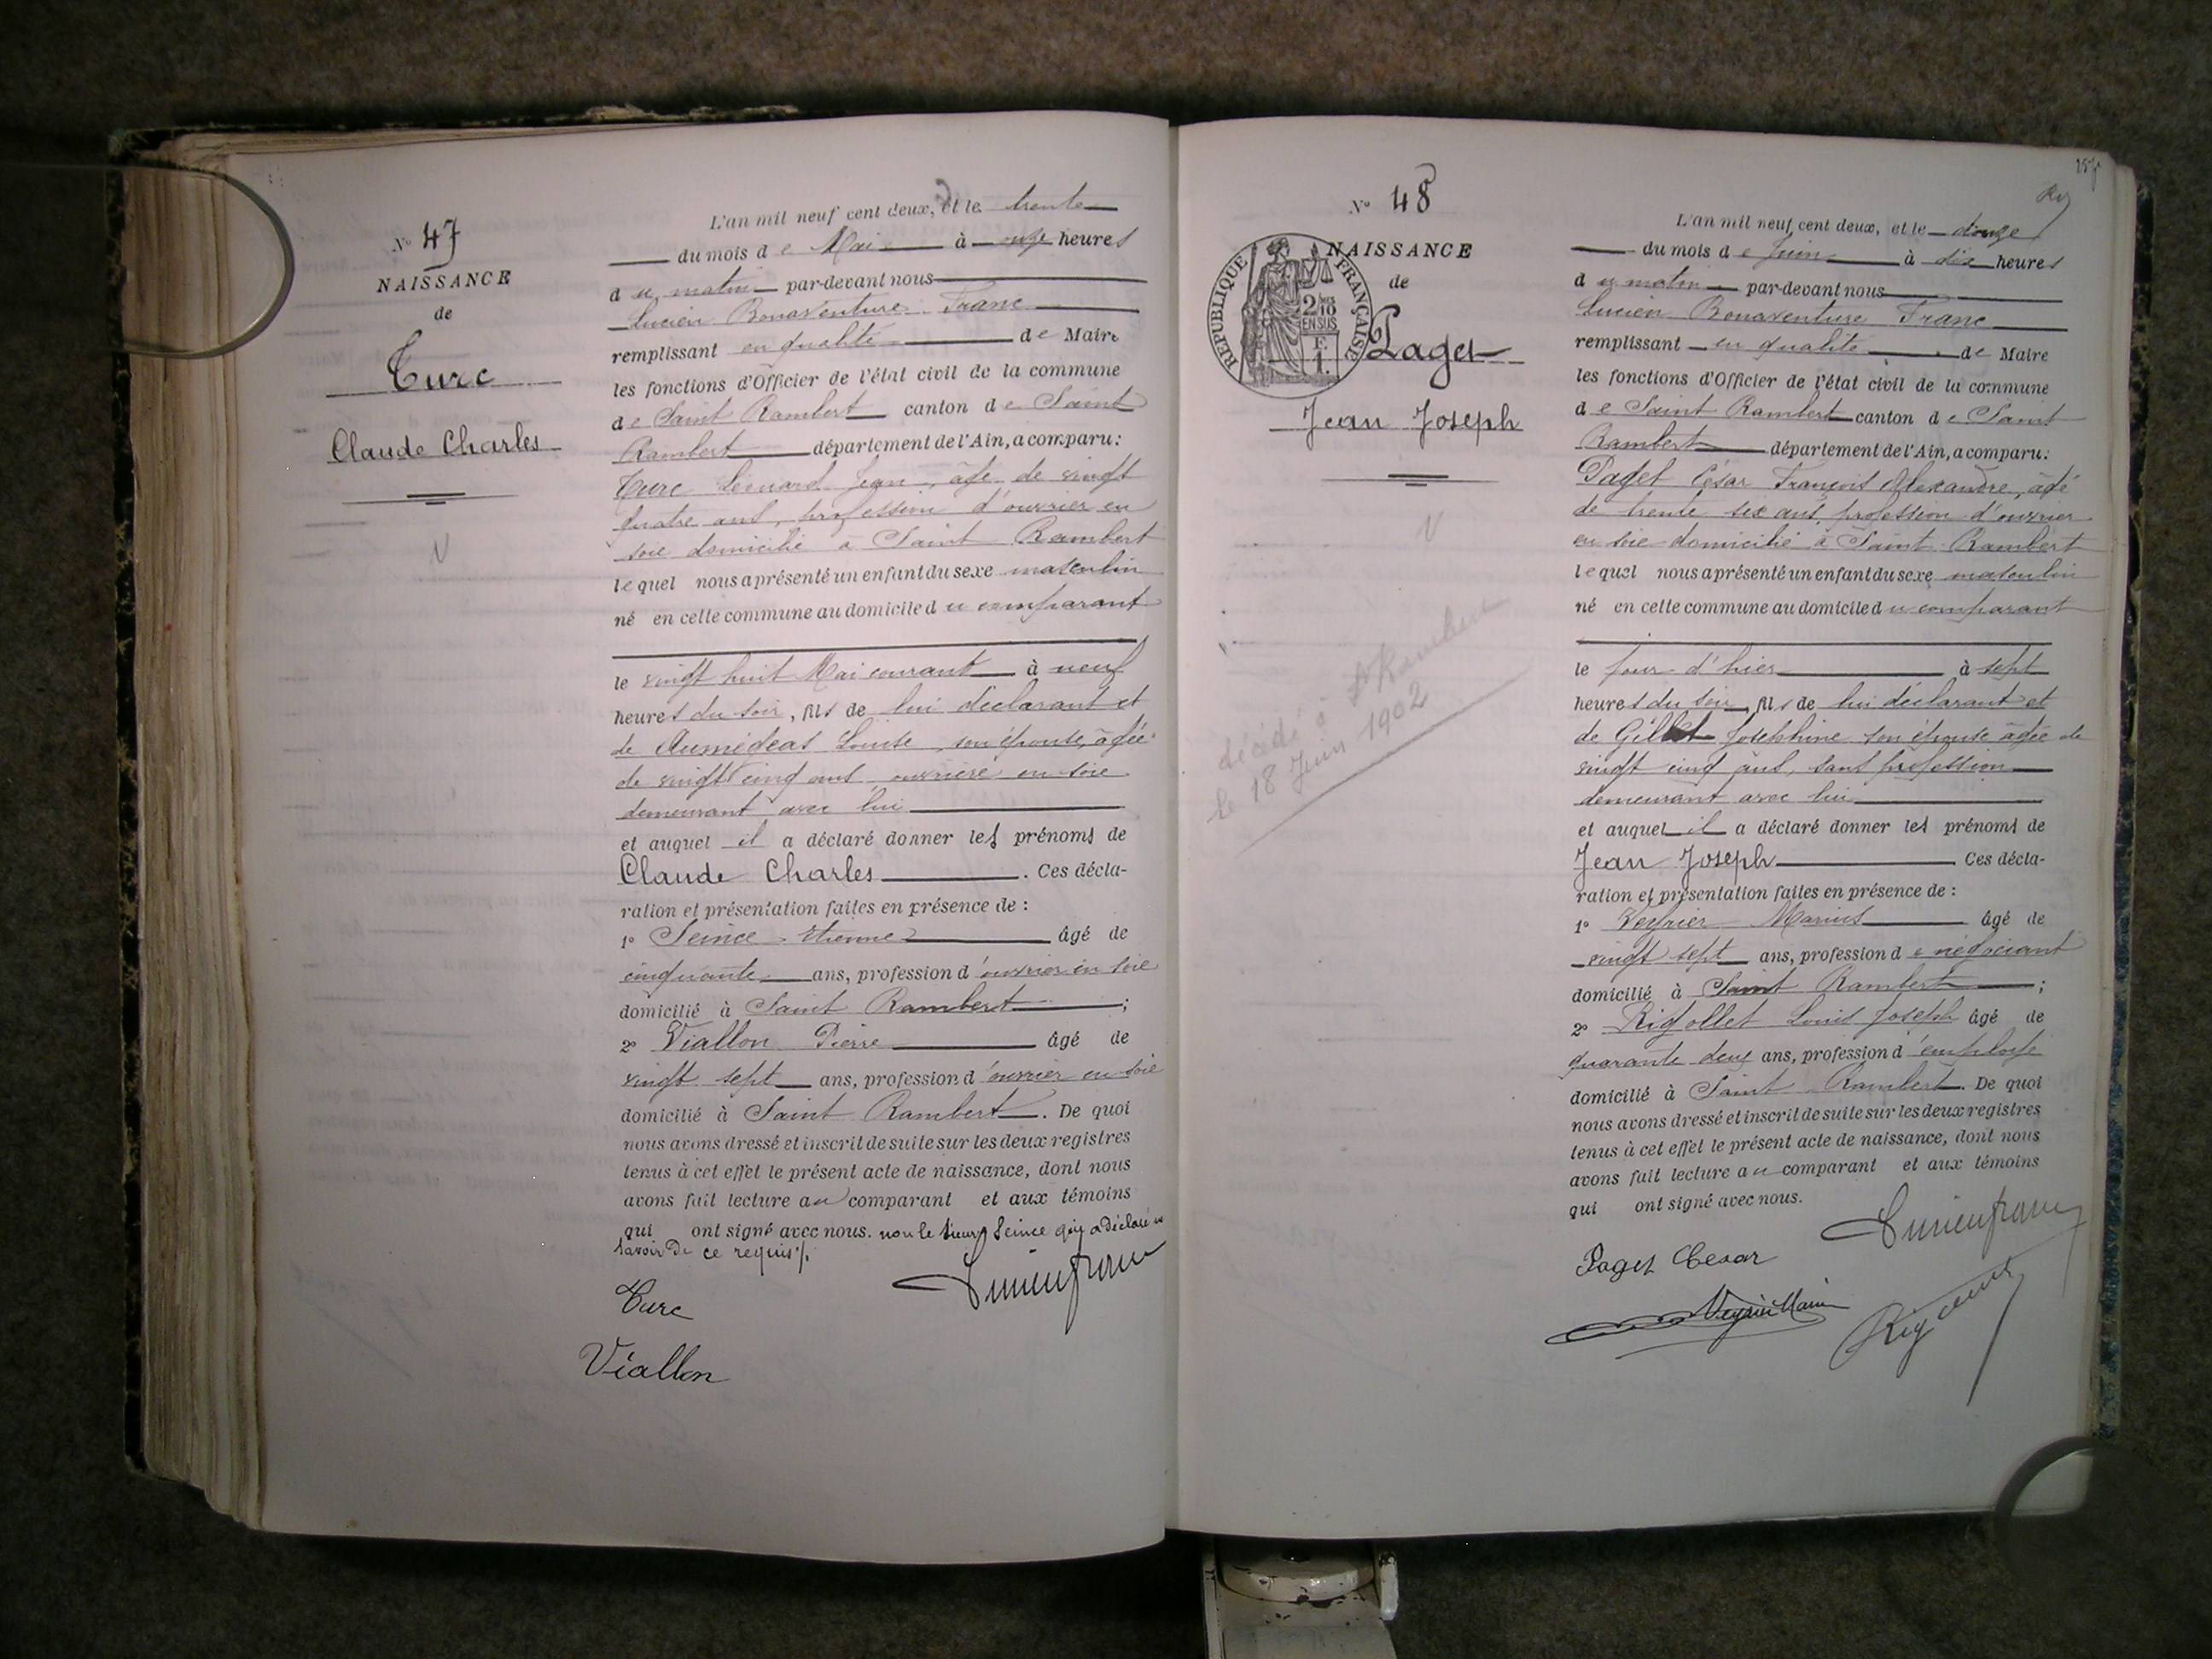 Nº 47
NAISSANCE
de
Turc
Claude Charles
L'an mil neuf cent deux, et le trente
du mois de Mai à onze heures
du matin par-devant nous
Lucien Bonaventure Franc
remplissant en qualité de Maire
les fonctions d'Officier de l'état civil de la commune
de Saint Rambert canton de Saint
Rambert département de l'Ain, a comparu:
Turc Jean, âgé de vingt
quatre ans, profession d'ouvrier en
soie domicilié à Saint Rambert
lequel nous a présenté un enfant du sexe masculin
né en cette commune au domicile du comparant
le vingt huit Mai courant à neuf
heures du soir, fils de lui déclarant et
de Louise son épouse, âgée
de vingt cinq ans ouvrière en soie
demeurant avec lui
et auquel il a déclaré donner les prénoms de
Claude Charles. Ces décla-
ration et présentation faites en présence de :
1º Seince Etienne âgé de
cinquante ans, profession d'ouvrier en soie
domicilié à Saint Rambert ;
2º Viallon Pierre âgé de
vingt sept ans, profession d'ouvrier en soie
domicilié à Saint Rambert. De quoi
nous avons dressé et inscrit de suite sur les deux registres
tenus à cet effet le présent acte de naissance, dont nous
avons fait lecture au comparant et aux témoins
qui ont signé avec nous. non le sieur Seince qui a déclaré ne
savoir de ce requis
Turc
Lucien franc
Viallon
157
Nº 48
NAISSANCE
de
REPUBLIQUE FRANÇAISE
2/10
EN SUS
F.
1.
Paget
Jean Joseph
décédé à St Rambert
le 18 Juin 1902
L'an mil neuf cent deux, et le douze
du mois de Juin à dix heures
du matin par-devant nous
Lucien Bonaventure Franc
remplissant en qualité de Maire
les fonctions d'Officier de l'état civil de la commune
de Saint Rambert canton de Saint
Rambert département de l'Ain, a comparu:
Paget César François Alexandre, âgé
de trente six ans, profession d'ouvrier
en soie domicilié à Saint Rambert
lequel nous a présenté un enfant du sexe masculin
né en cette commune au domicile du comparant
le jour d'hier à sept
heures du soir, fils de lui déclarant et
de Gillet Joséphine son épouse âgée de
vingt cinq ans, sans profession
demeurant avec lui
et auquel il a déclaré donner les prénoms de
Jean Joseph. Ces décla-
ration et présentation faites en présence de :
1º Veyrier Marius âgé de
vingt sept ans, profession de négociant
domicilié à Saint Rambert ;
2º Rigollet Louis Joseph âgé de
quarante deux ans, profession d'employé
domicilié à Saint Rambert. De quoi
nous avons dressé et inscrit de suite sur les deux registres
tenus à cet effet le présent acte de naissance, dont nous
avons fait lecture au comparant et aux témoins
qui ont signé avec nous.
Lucien franc
Paget Cesar
Veyrier Marius